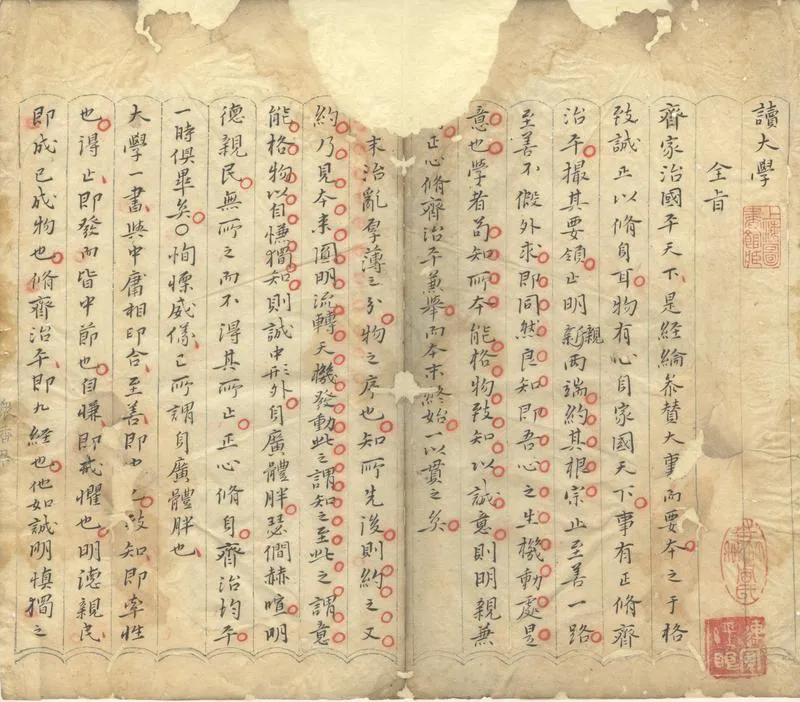 讀大學
全旨
上海圖書館藏
齊家治國平天下是経綸叅賛大事而要本之于格
致誠正以脩身耳物有心身家國天下事有正脩齊
治平撮其要領止明新親兩端約其根宗止至善一路
至善不假外求即同然良知即吾心之生機動處是
意也學者苟知所本能格物致知以誠意則明親兼
正心脩齊治平兼舉而本末終始一以貫之矣
末治亂厚薄之分物之序也知所先後則約之又
約乃見本来圓明流轉天機發動此之謂知之至此之謂意
能格物以自慊獨知則誠中形外身廣體胖瑟僩赫喧明
德親民無所之而不得其所止正心脩身齊治均平
一時俱畢矣〇恂慄威儀已所謂身廣體胖也
大學一書與中庸相印合至善即也致知即率性
也得止即發而皆中節也自慊即戒懼也明德親民
即成己成物也脩齊治平即九経也他如誠明慎獨之